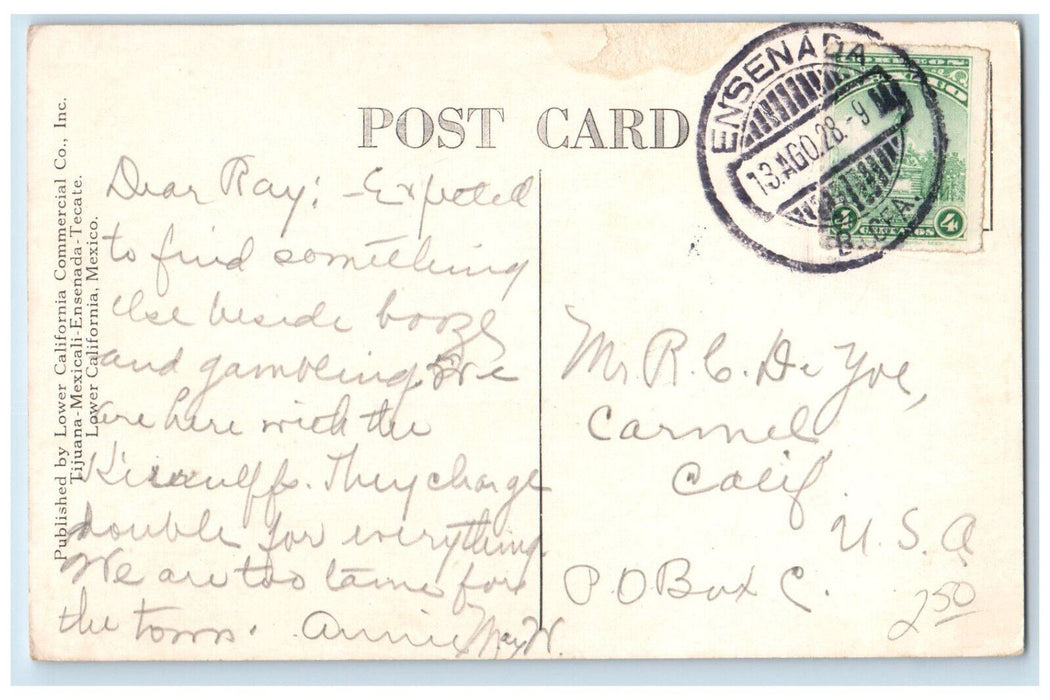 POST CARD
ENSENADA
13.AGO.28.-9
B. CFA.
4 CENTAVOS 4
Published by Lower California Commercial Co., Inc.
Tijuana-Mexicali-Ensenada-Tecate.
Lower California, Mexico.
Dear Ray: Expected
to find something
else beside booze
and gambling. We
are here with the
They charge
double for everything.
We are too tame for
the town. Annie May W.
Mr. R. C. De Yoe,
Carmel
Calif.
U. S. A
P O Box C.
250